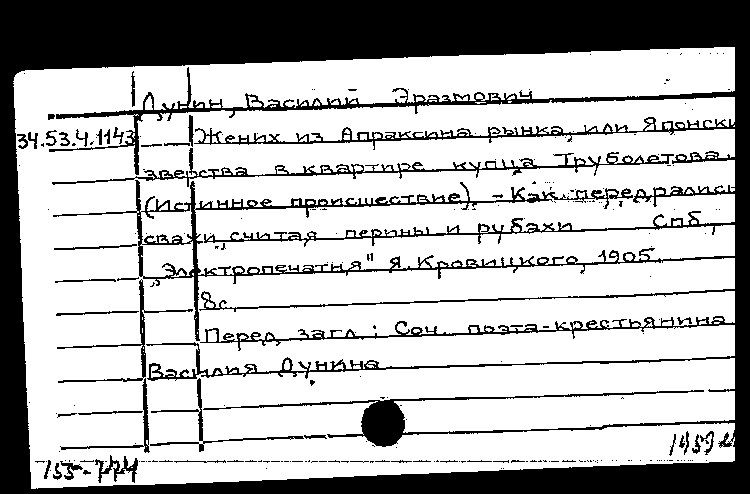 Дунин, Василий Эразмович
34.53.4.1143 Жених из Апраксина рынка, или Японски
зверства в квартире купца Труболетова.
(Истинное происшествие). - Как передрались
свахи, считая перины и рубахи Спб.,
„Электропечатня" Я. Кровицкого, 1905.
8с.
Перед загл.: Соч. поэта-крестьянина
Василия Дунина
155-774